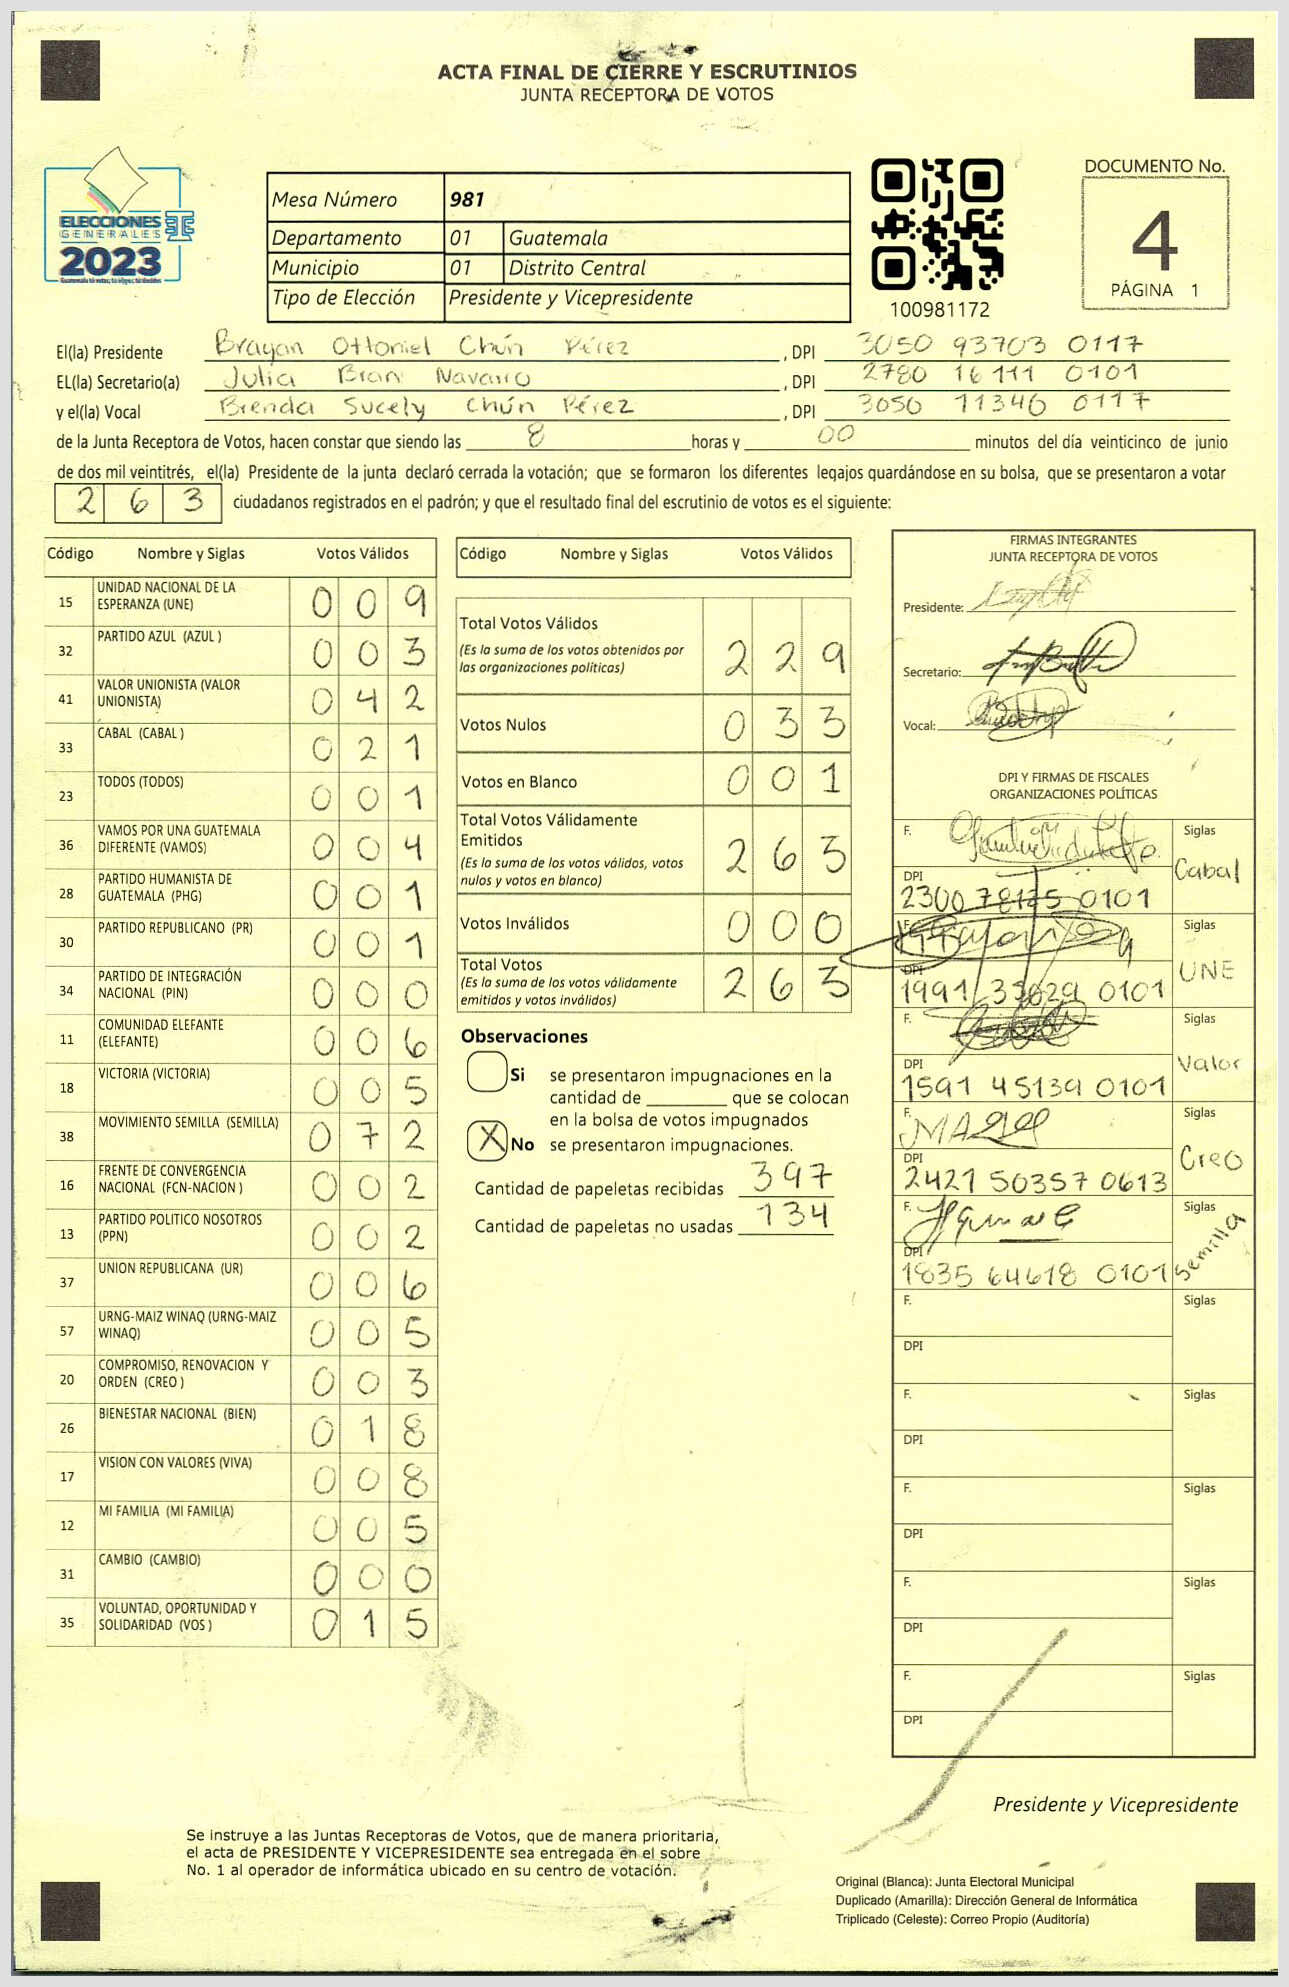 ACTA FINAL DE CIERRE Y ESCRUTINIOS
JUNTA RECEPTORA DE VOTOS
ELECCIONES
GENERALES
2023
Mesa Número 981
Departamento 01 Guatemala
Municipio 01 Distrito Central
Tipo de Elección Presidente y Vicepresidente
100981172
DOCUMENTO No.
4
PÁGINA 1
El(la) Presidente Brayan Ottoniel Chún Pérez, DPI 3050 93703 0117
EL(la) Secretario(a) Julia Bran Navarro, DPI 2780 16111 0101
y el(la) Vocal Brenda Sucely Chún Pérez, DPI 3050 11346 0117
de la Junta Receptora de Votos, hacen constar que siendo las 8 horas y 00 minutos del día veinticinco de junio
de dos mil veintitrés, el(la) Presidente de la junta declaró cerrada la votación; que se formaron los diferentes legajos guardándose en su bolsa, que se presentaron a votar
263 ciudadanos registrados en el padrón; y que el resultado final del escrutinio de votos es el siguiente:
Código Nombre y Siglas Votos Válidos
15 UNIDAD NACIONAL DE LA
ESPERANZA (UNE) 009
32 PARTIDO AZUL (AZUL ) 003
41 VALOR UNIONISTA (VALOR
UNIONISTA) 042
33 CABAL (CABAL ) 021
23 TODOS (TODOS) 001
36 VAMOS POR UNA GUATEMALA
DIFERENTE (VAMOS) 004
28 PARTIDO HUMANISTA DE
GUATEMALA (PHG) 001
30 PARTIDO REPUBLICANO (PR) 001
34 PARTIDO DE INTEGRACIÓN
NACIONAL (PIN) 000
11 COMUNIDAD ELEFANTE
(ELEFANTE) 006
18 VICTORIA (VICTORIA) 005
38 MOVIMIENTO SEMILLA (SEMILLA) 072
16 FRENTE DE CONVERGENCIA
NACIONAL (FCN-NACION ) 002
13 PARTIDO POLITICO NOSOTROS
(PPN) 002
37 UNION REPUBLICANA (UR) 006
57 URNG-MAIZ WINAQ (URNG-MAIZ
WINAQ) 005
20 COMPROMISO, RENOVACION Y
ORDEN (CREO ) 003
26 BIENESTAR NACIONAL (BIEN) 018
17 VISION CON VALORES (VIVA) 008
12 MI FAMILIA (MI FAMILIA) 005
31 CAMBIO (CAMBIO) 000
35 VOLUNTAD, OPORTUNIDAD Y
SOLIDARIDAD (VOS ) 015
Código Nombre y Siglas Votos Válidos
Total Votos Válidos 229
(Es la suma de los votos obtenidos por
las organizaciones políticas)
Votos Nulos 033
Votos en Blanco 001
Total Votos Válidamente
Emitidos 263
(Es la suma de los votos válidos, votos
nulos y votos en blanco)
Votos Inválidos 000
Total Votos 263
(Es la suma de los votos válidamente
emitidos y votos inválidos)
Observaciones
Si se presentaron impugnaciones en la
cantidad de ________ que se colocan
en la bolsa de votos impugnados
X No se presentaron impugnaciones.
Cantidad de papeletas recibidas 397
Cantidad de papeletas no usadas 134
FIRMAS INTEGRANTES
JUNTA RECEPTORA DE VOTOS
Presidente:
Secretario:
Vocal:
DPI Y FIRMAS DE FISCALES
ORGANIZACIONES POLÍTICAS
F. Siglas
Cabal
DPI
2300 78125 0101
F. Siglas
UNE
DPI
1991 35629 0101
F. Siglas
Valor
DPI
1591 45139 0101
F. Siglas
Creo
DPI
2421 50357 0613
F. Siglas
Semilla
DPI
1835 64618 0101
F. Siglas
DPI
F. Siglas
DPI
F. Siglas
DPI
F. Siglas
DPI
F. Siglas
DPI
Presidente y Vicepresidente
Se instruye a las Juntas Receptoras de Votos, que de manera prioritaria,
el acta de PRESIDENTE Y VICEPRESIDENTE sea entregada en el sobre
No. 1 al operador de informática ubicado en su centro de votación.
Original (Blanca): Junta Electoral Municipal
Duplicado (Amarilla): Dirección General de Informática
Triplicado (Celeste): Correo Propio (Auditoría)